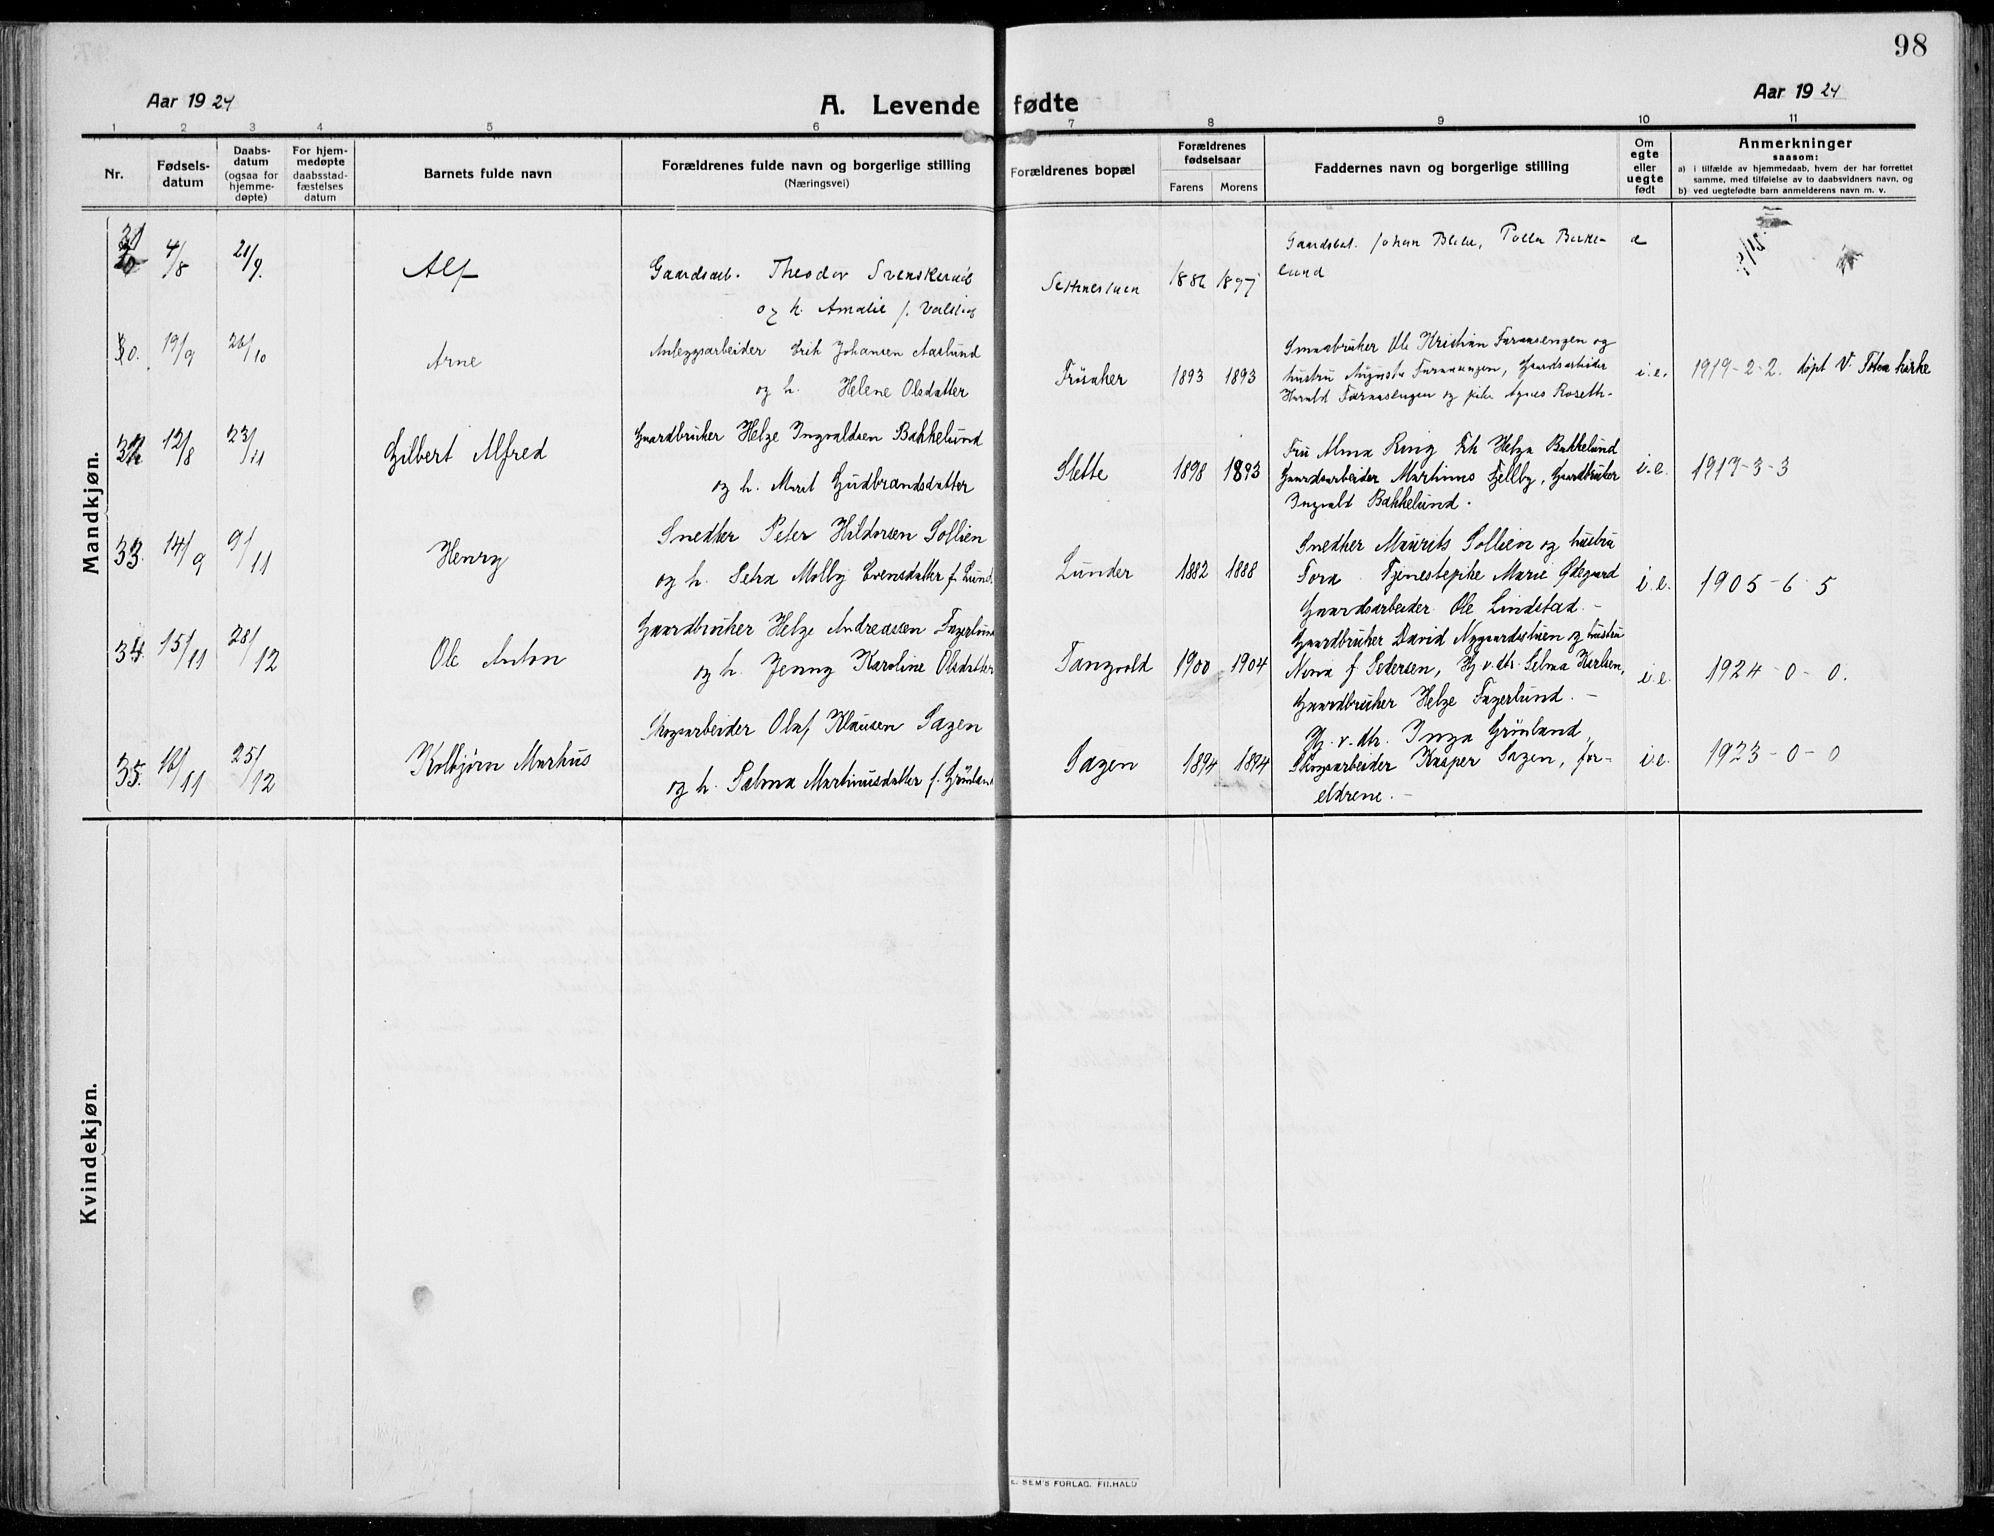 98
Aar 1924
A. Levende fødte
Aar 1924
1 2 3 4 5 6 7 8 9 10 11
Nr.
Fødselsdatum
Daabsdatum (ogsaa for hjemmedøpte)
For hjemmedøpte daabsstadfæstelses datum
Barnets fulde navn
Forældrenes fulde navn og borgerlige stilling
(Næringsvei)
Forældrenes bopæl
Forældrenes fødselsaar
Farens Morens
Faddernes navn og borgerlige stilling
Om egte eller uegte født
Anmerkninger
saasom:
a) i tilfælde av hjemmedaab, hvem der har forrettet
samme, med tilføielse av to daabsvidners navn, og
b) ved uegtefødte barn anmelderens navn m. v.
Mandkjøn.
4/8 21/9. Alf
Gaardsarb. Theodor
og h. Amalie f.
1886 1897
Gaardsbet. Johan
e
30. 19/9 26/10 Arne
Anleggsarbeider Erik Johansen Aaslund
og h. Helene Olsdatter
1893 1893
Smaabruker Ole Kristian Faraasengen og
hustru Augusta Gaardsarbeider
Harald Faraasengen og pike Agnes Roseth.
i.e. 1919-2-2. døpt V. Toten kirke
12/8 23/11 Gilbert Alfred
Gaardbruker Helge Ingvaldsen Bakkelund
og h. Marit Gudbrandsdatter
Slette 1898 1893
Fru Alma Ring Frk Helga Bakkelund
Gaardsarbeider Martinus Fjellby, Gaardbruker
Ingvald Bakkelund.
i.e. 1917-3-3
33. 14/9 9/11 Henry
Snedker Peter Hildorsen Sollien
og h. Petra Molby Evensdatter f. Lund.
Lunder 1882 1888
Snedker Maurits Sollien og hustru
Tora. Tjenestepike Marie Ødegaard
Gaardsarbeider Ole Lindstad. -
i.e. 1905-6-5
34. 15/11 28/12 Ole Anton
Gaardbruker Helge Andreassen Fagerlund
og h. Jenny Karoline Olsdatter
Tangvold 1900 1904
Gaardbruker David Nygaardsstuen og hustru
Nina f Pedersen, Hj. v. dtr. Selma Karlsen,
Gaardbruker Helge Fagerlund. -
i.e. 1924-0-0.
35. 25/12 Kolbjørn Markus
Skogsarbeider Olaf Klausen Sagen
og h. Selma Martinusdatter f. Grønland
Sagen 1894 1894
Hj. v. dtr. Inga Grønland,
Skogsarbeider Kasper Sagen, for-
eldrene. -
i.e. 1923-0-0
Kvindekjøn.
E. SEM'S FORLAG. FR.HALD